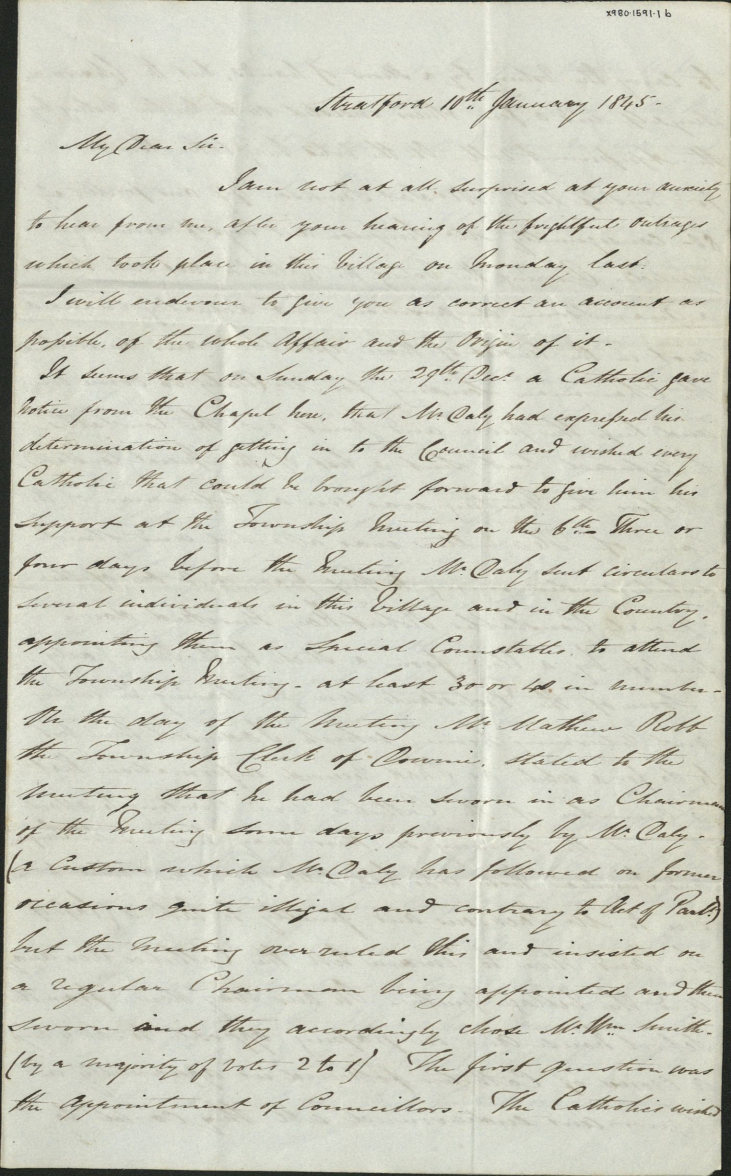 x980.1591.1 b
Stratford 10th January 1845-
My Dear Sir-
I am not at all surprised at your anxiety
to hear from me, after your hearing of the frightful outrages
which took place in this Village on Monday last.
I will endevour to give you as correct an account as
possible, of the whole Affair and the Origin of it-
It seems that on Sunday the 29th Decr. a Catholic gave
notice from the Chapel here, that Mr Daly had expressed his
determination of getting in to the Council and wished every
Catholic that could be brought forward to give him his
support at the Township Meeting on the 6th- Three or
four days before the Meeting Mr Daly sent circulars to
several individuals in this Village and in the Country,
appointing them as Special Counstables, to attend
the Township Meeting- at least 30 or 40 in number-
On the day of the Meeting Mr Mathew Robb
the Township Clerk of Downie, stated to the
meeting that he had been sworn in as Chairman
of the Meeting some days previously by Mr Daly-
(a custom which Mr Daly has followed on former
occasions quite illigal and contrary to Act of Parlt.)
but the Meeting overruled this and insisted on
a regular Chairman being appointed and then
sworn and they accordingly chose Mr Wm Smith-
(by a majority of votes 2 to 1) The first question was
the Appointment of Councillors- The Catholics wished